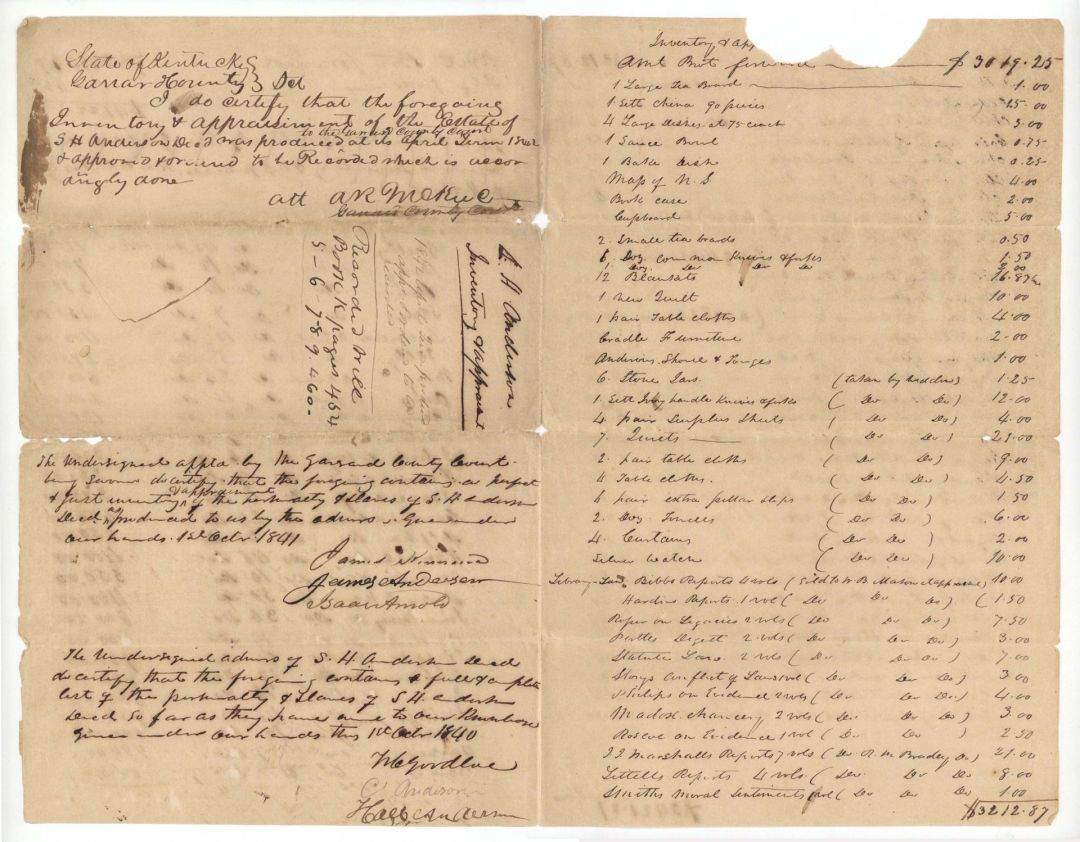 State of Kentucky
Garrard County } Sct
I do certify that the foregoing
Inventory & appraisment of the Estate of
to the Garrard County Court
S H Anderson Decd was produced at its April Term 1842
& approved & ordered to be Recorded which is accor
dingly done
att A R McKee
Garrard County Court
S. H Anderson
Inventory & appraisment
1842 April
Recorded Will
Book K pages 454
5-6 7-8 9. 460-
The undersigned appts by the Garrard County Court
being Sworn do certify that the foregoing contains a perfect
& just inventory & appraisement of the personalty & Slaves of S. H Anderson
Decd as produced to us by the admrs. Given under
our hands. 1st Octr 1841
James
James Anderson
Isaac Arnold
The undersigned admrs of S. H Anderson Decd
do certify that the foregoing contains a full & complete
list of the personalty & Slaves of S H Anderson
Decd So far as they have come to our
Given under our hands this 1st Octr 1840
W C Goodloe
Anderson
Anderson
Inventory & App
Amt Brot forward $3019.25
1 Large Tea Board 1.00
1 Sett china 90 pieces 15.00
4 Large Dishes at 75 each 3.00
1 Sauce Bowl 0.75
1 Bake Dish 0.25
Map of N. S 4.00
Book case 2.00
Cupboard 5.00
2 Small tea boards 0.50
6 Doz. Common Knives & forks 1.50
1 Doz. Do Do Do 2.00
12 Blankets 16.87½
1 New Quilt 10.00
1 pair Table cloths 4.00
Cradle Furniture 2.00
Andirons, Shovel & Tonges 1.00
6 Stone Jars (taken by widdow) 1.25
1 Sett Ivory handle Knives & forks (Do Do) 12.00
4 pair Surplus Sheets (Do Do) 4.00
7 Quilts (Do Do) 21.00
2 pair table cloths (Do Do) 9.00
Table cloths. (Do Do) 4.50
6 pair extra pillow slips (Do Do) 1.50
2 Doz Towels (Do Do) 6.00
4 Curtains (Do Do) 2.00
Silver watch (Do Do) 10.00
Library Bibbs Reports 4 vols (Sold to W B Mason) 10.00
Hardins Reports 1 vol (Do Do Do) 1.50
Roper on Legacies 2 vols (Do Do Do) 7.50
Digest 2 vols (Do Do Do) 3.00
Statute Law 2 vols (Do Do Do) 7.00
Storys Conflict of Laws 1 vol (Do Do Do) 3.00
Philips on Evidence 2 vols (Do Do Do) 4.00
Madox chancery 2 vols (Do Do Do) 3.00
Roscoe on Evidence 1 vol (Do Do Do) 2.50
J J Marshalls Reports 7 vols (Do R. M Bradley Do) 21.00
Littells Reports 4 vols (Do Do Do) 8.00
Smiths Moral Sentiments 1 vol (Do Do Do) 1.00
$3212.87